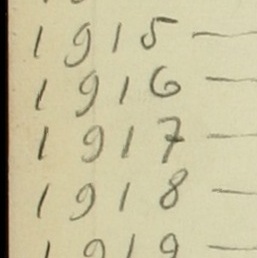 1915 —
1916 —
1917 —
1918 —
1919 —